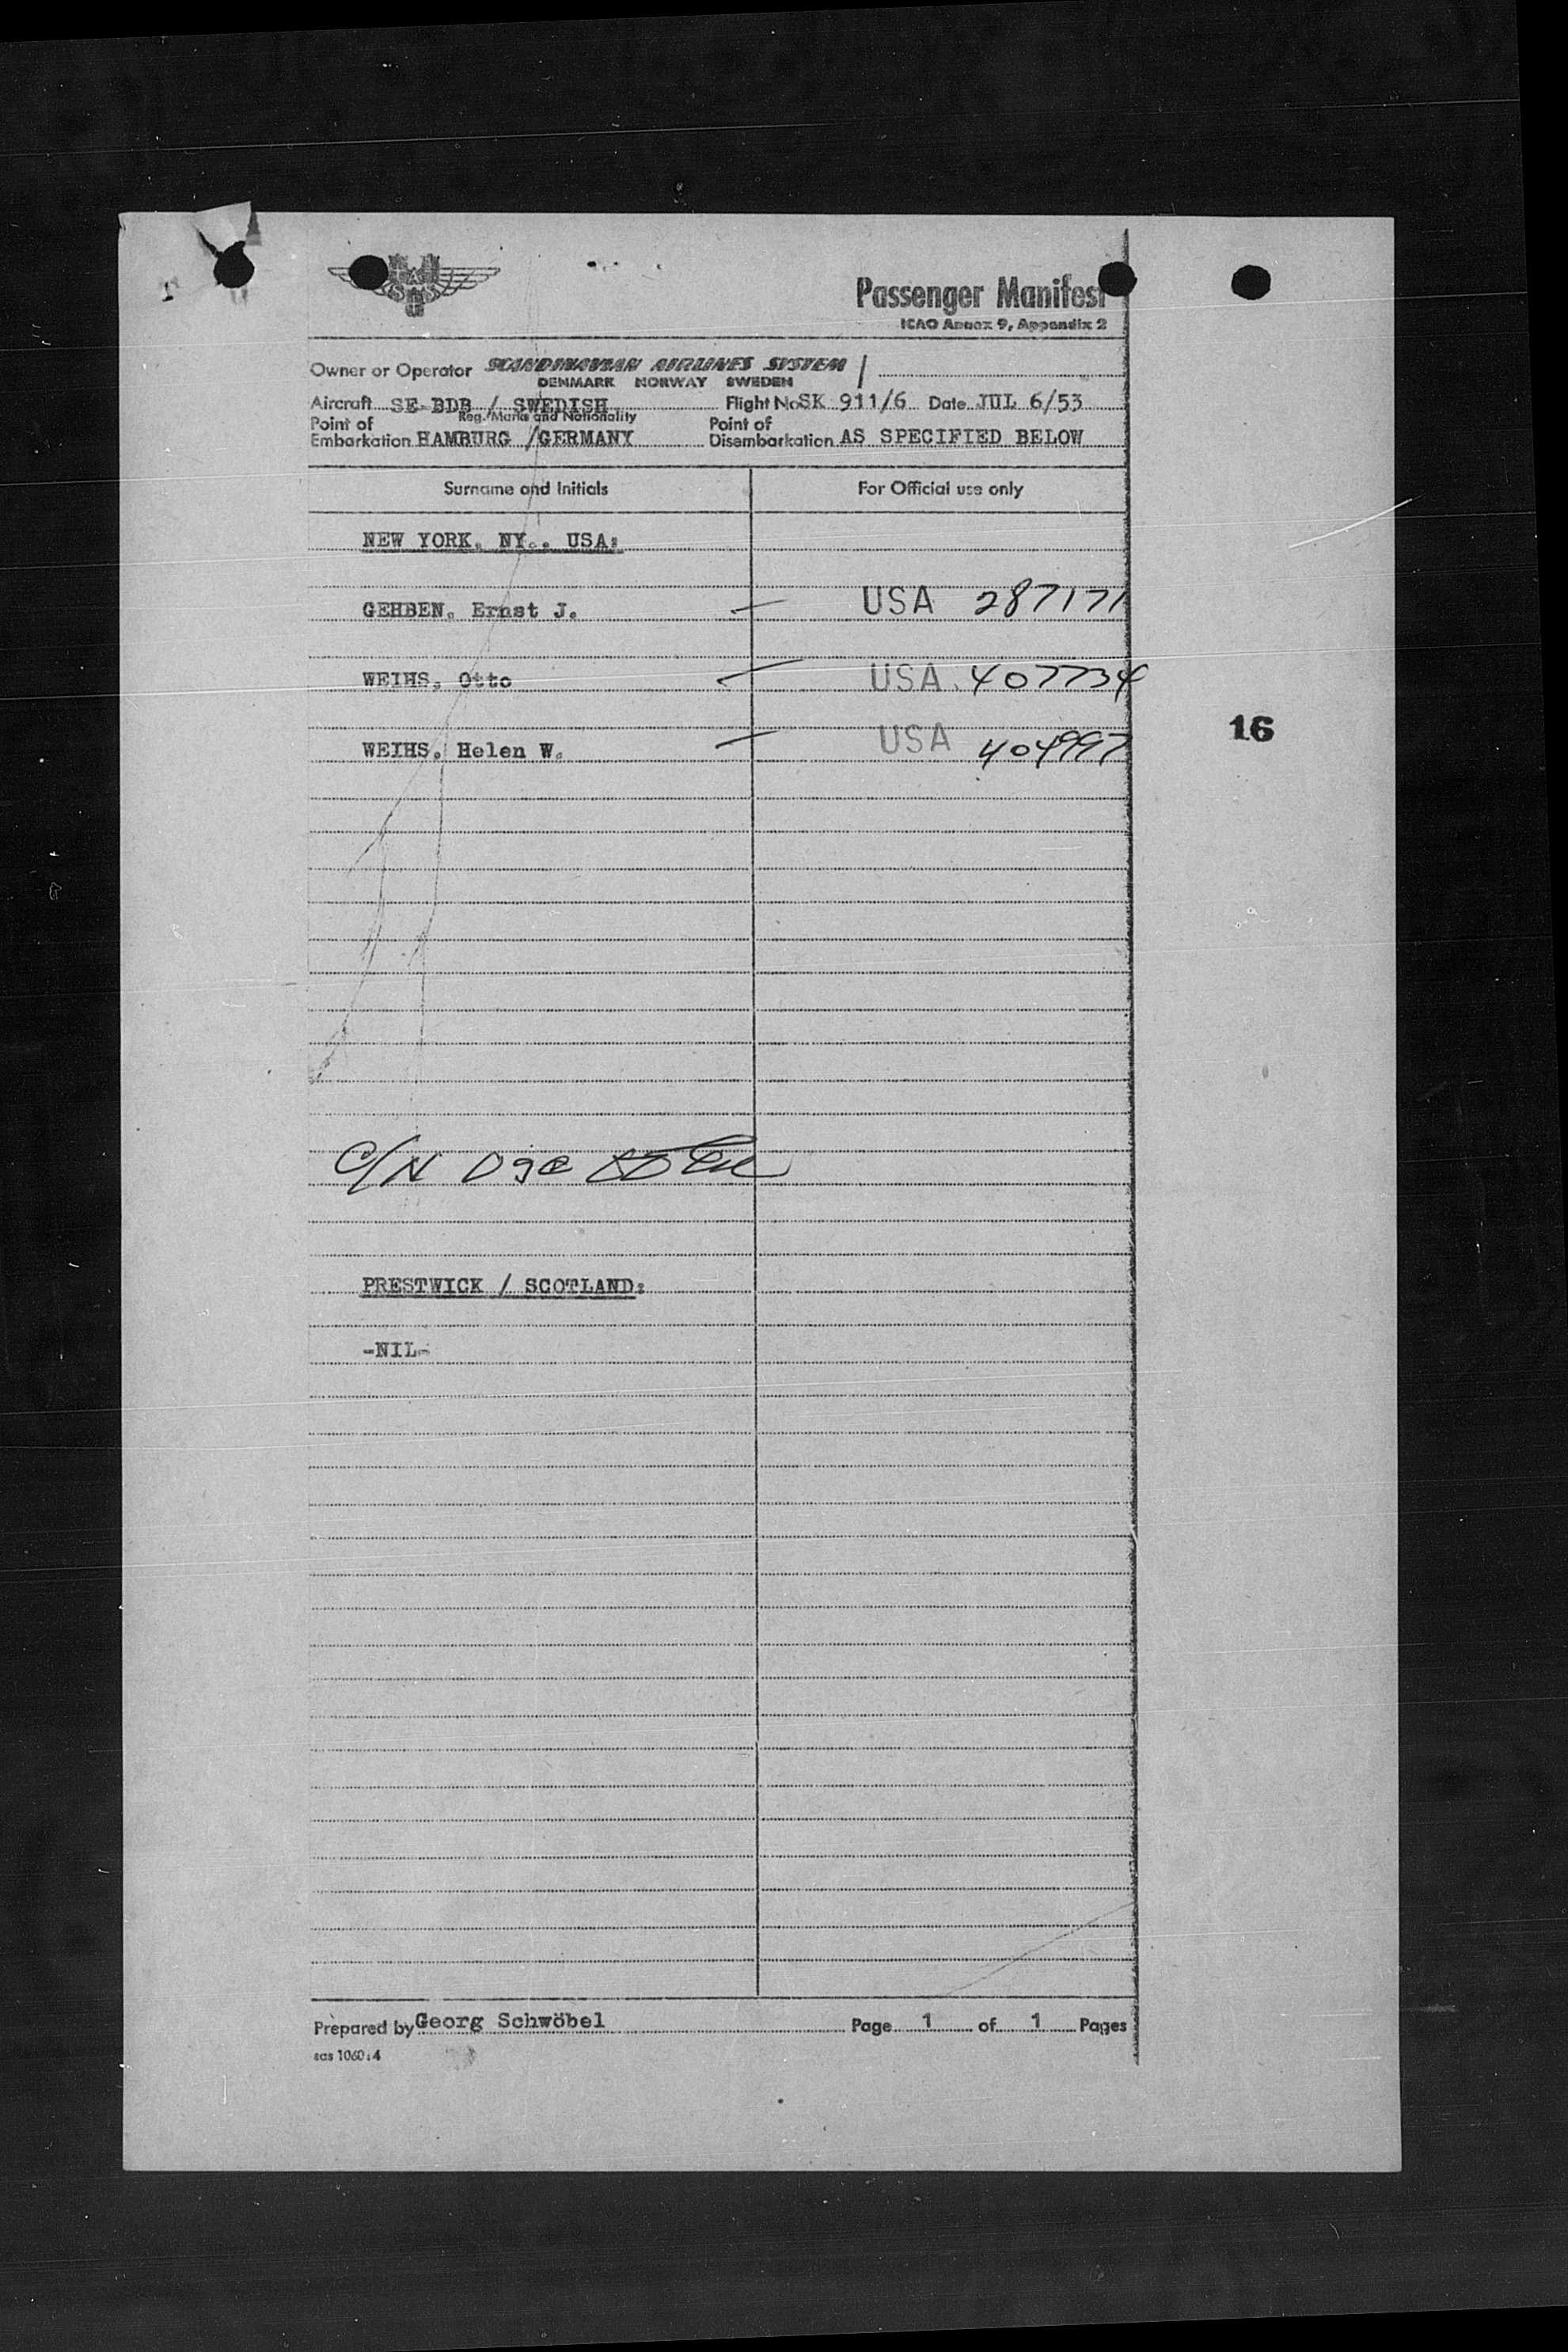 Passenger Manifest
ICAO Annex 9, Appendix 2
Owner or Operator SCANDINAVIAN AIRLINES SYSTEM
DENMARK NORWAY SWEDEN
Aircraft SE-BDB / SWEDISH Flight No SK 911/6 Date JUL 6/53
Reg. Marks and Nationality
Point of Embarkation HAMBURG / GERMANY Point of Disembarkation AS SPECIFIED BELOW
Surname and Initials For Official use only
NEW YORK, NY., USA:
GEHBEN, Ernst J. USA 287171
WEIHS, Otto USA 407734
WEIHS, Helen W. USA 404997
16
PRESTWICK / SCOTLAND:
-NIL-
Prepared by Georg Schwöbel Page 1 of 1 Pages
sas 1060:4